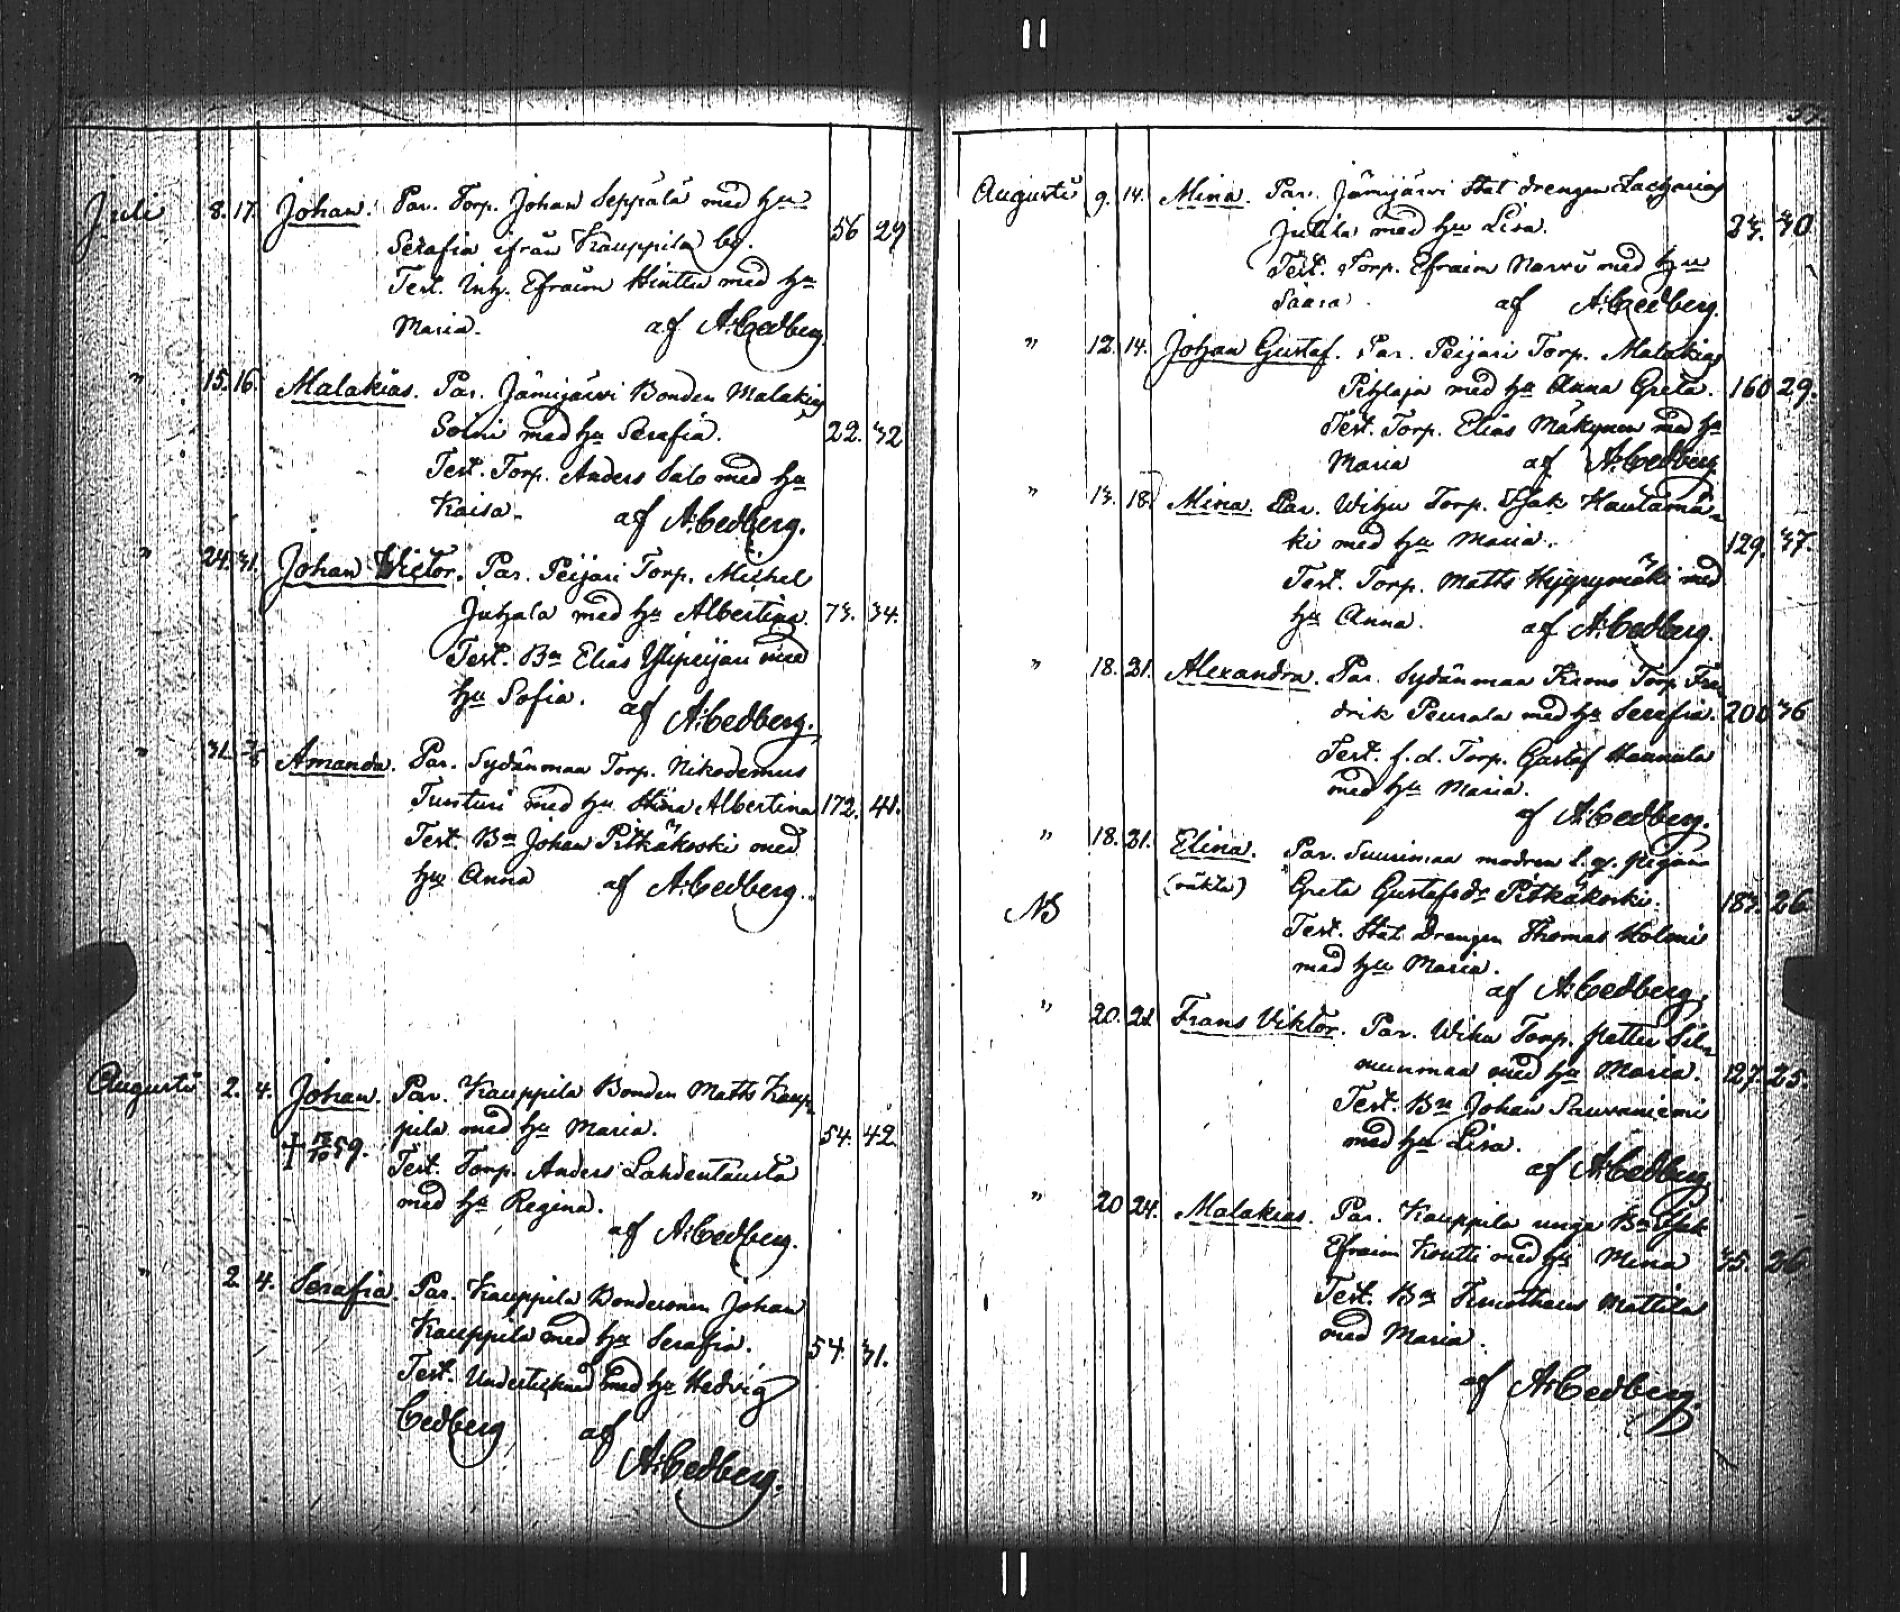 Juli 8. 17. Johan. Par. Torp. Johan Seppälä med hu
Serafia ifrån Kauppila by. 56 29
Test. Inh. Efraim Hinttu med hu
Maria. af A:Cedberg
" 15. 16. Malakias. Par. Jämijärvi Bonden Malakias
Soini med hu Serafia. 22. 32
Test. Torp. Anders Salo med hu
Kaisa. af A:Cedberg.
" 24. 31. Johan Victor. Par. Peijari Torp. Michel
Juhala med hu Albertina. 73. 34.
Test. Bn Elias Ylipeijari med
hu Sofia. af A:Cedberg.
" 31. Amanda. Par. Sydänmaa Torp. Nikodemus
Tunturi med hu Albertina 172. 41.
Test. Bn Johan Pitkäkoski med
hu Anna af A:Cedberg.
Augusti 2. 4. Johan. Par. Kauppila Bonden Matts Kaup-
pila med hu Maria. 54. 42.
† 59.
Test. Torp. Anders Lahdentausta
med hu Regina.
af A:Cedberg.
" 2. 4. Serafia. Par. Kauppila Bondesonen Johan
Kauppila med hu Serafia. 54. 31.
Test. Undertecknad med hu Hedvig
Cedberg af
A:Cedberg.
Augusti 9. 14. Mina. Par. Jämijärvi Stat drengen Zacharias
Jutila med hu Lisa. 23. 30
Test. Torp. Efraim Narvi med hu
Saara. af A:Cedberg.
" 12. 14. Johan Gustaf. Par. Peijari Torp. Malakias
Pihlaja med hu Anna Greta. 160 29.
Test. Torp. Elias Mäkynen med hu
Maria af A:Cedberg
" 13. 18. Mina. Par. Wihu Torp. Isak Hautamä-
ki med hu Maria. 129. 37.
Test. Torp. Matts Myyrymäki med
hu Anna. af A:Cedberg.
" 18. 21. Alexandra. Par. Sydänmaa Krono Torp. Fre-
drik Peurala med hu Serafia. 200 36
Test. f. d. Torp. Gustaf Hannula
med hu Maria.
af A:Cedberg.
" 18. 21. Elina. Par. Suurimaa modren l. q. pigan
(oäkta) Greta Gustafsdr Pitkäkoski. 183. 26
NB
Test. Stat Drengen Thomas Koloni
med hu Maria.
af A:Cedberg.
" 20. 21. Frans Viktor. Par. Wihu Torp. Petter Sil-
munmaa med hu Maria. 127. 25.
Test. Bn Johan Sauvaniemi
med hu Lisa.
af A:Cedberg
" 20 24. Malakias. Par. Kauppila unga Bn Isak
Efraim Koutti med hu Mina 35. 26
Test. Bn Timotheus Mattila
med Maria.
af A:Cedberg